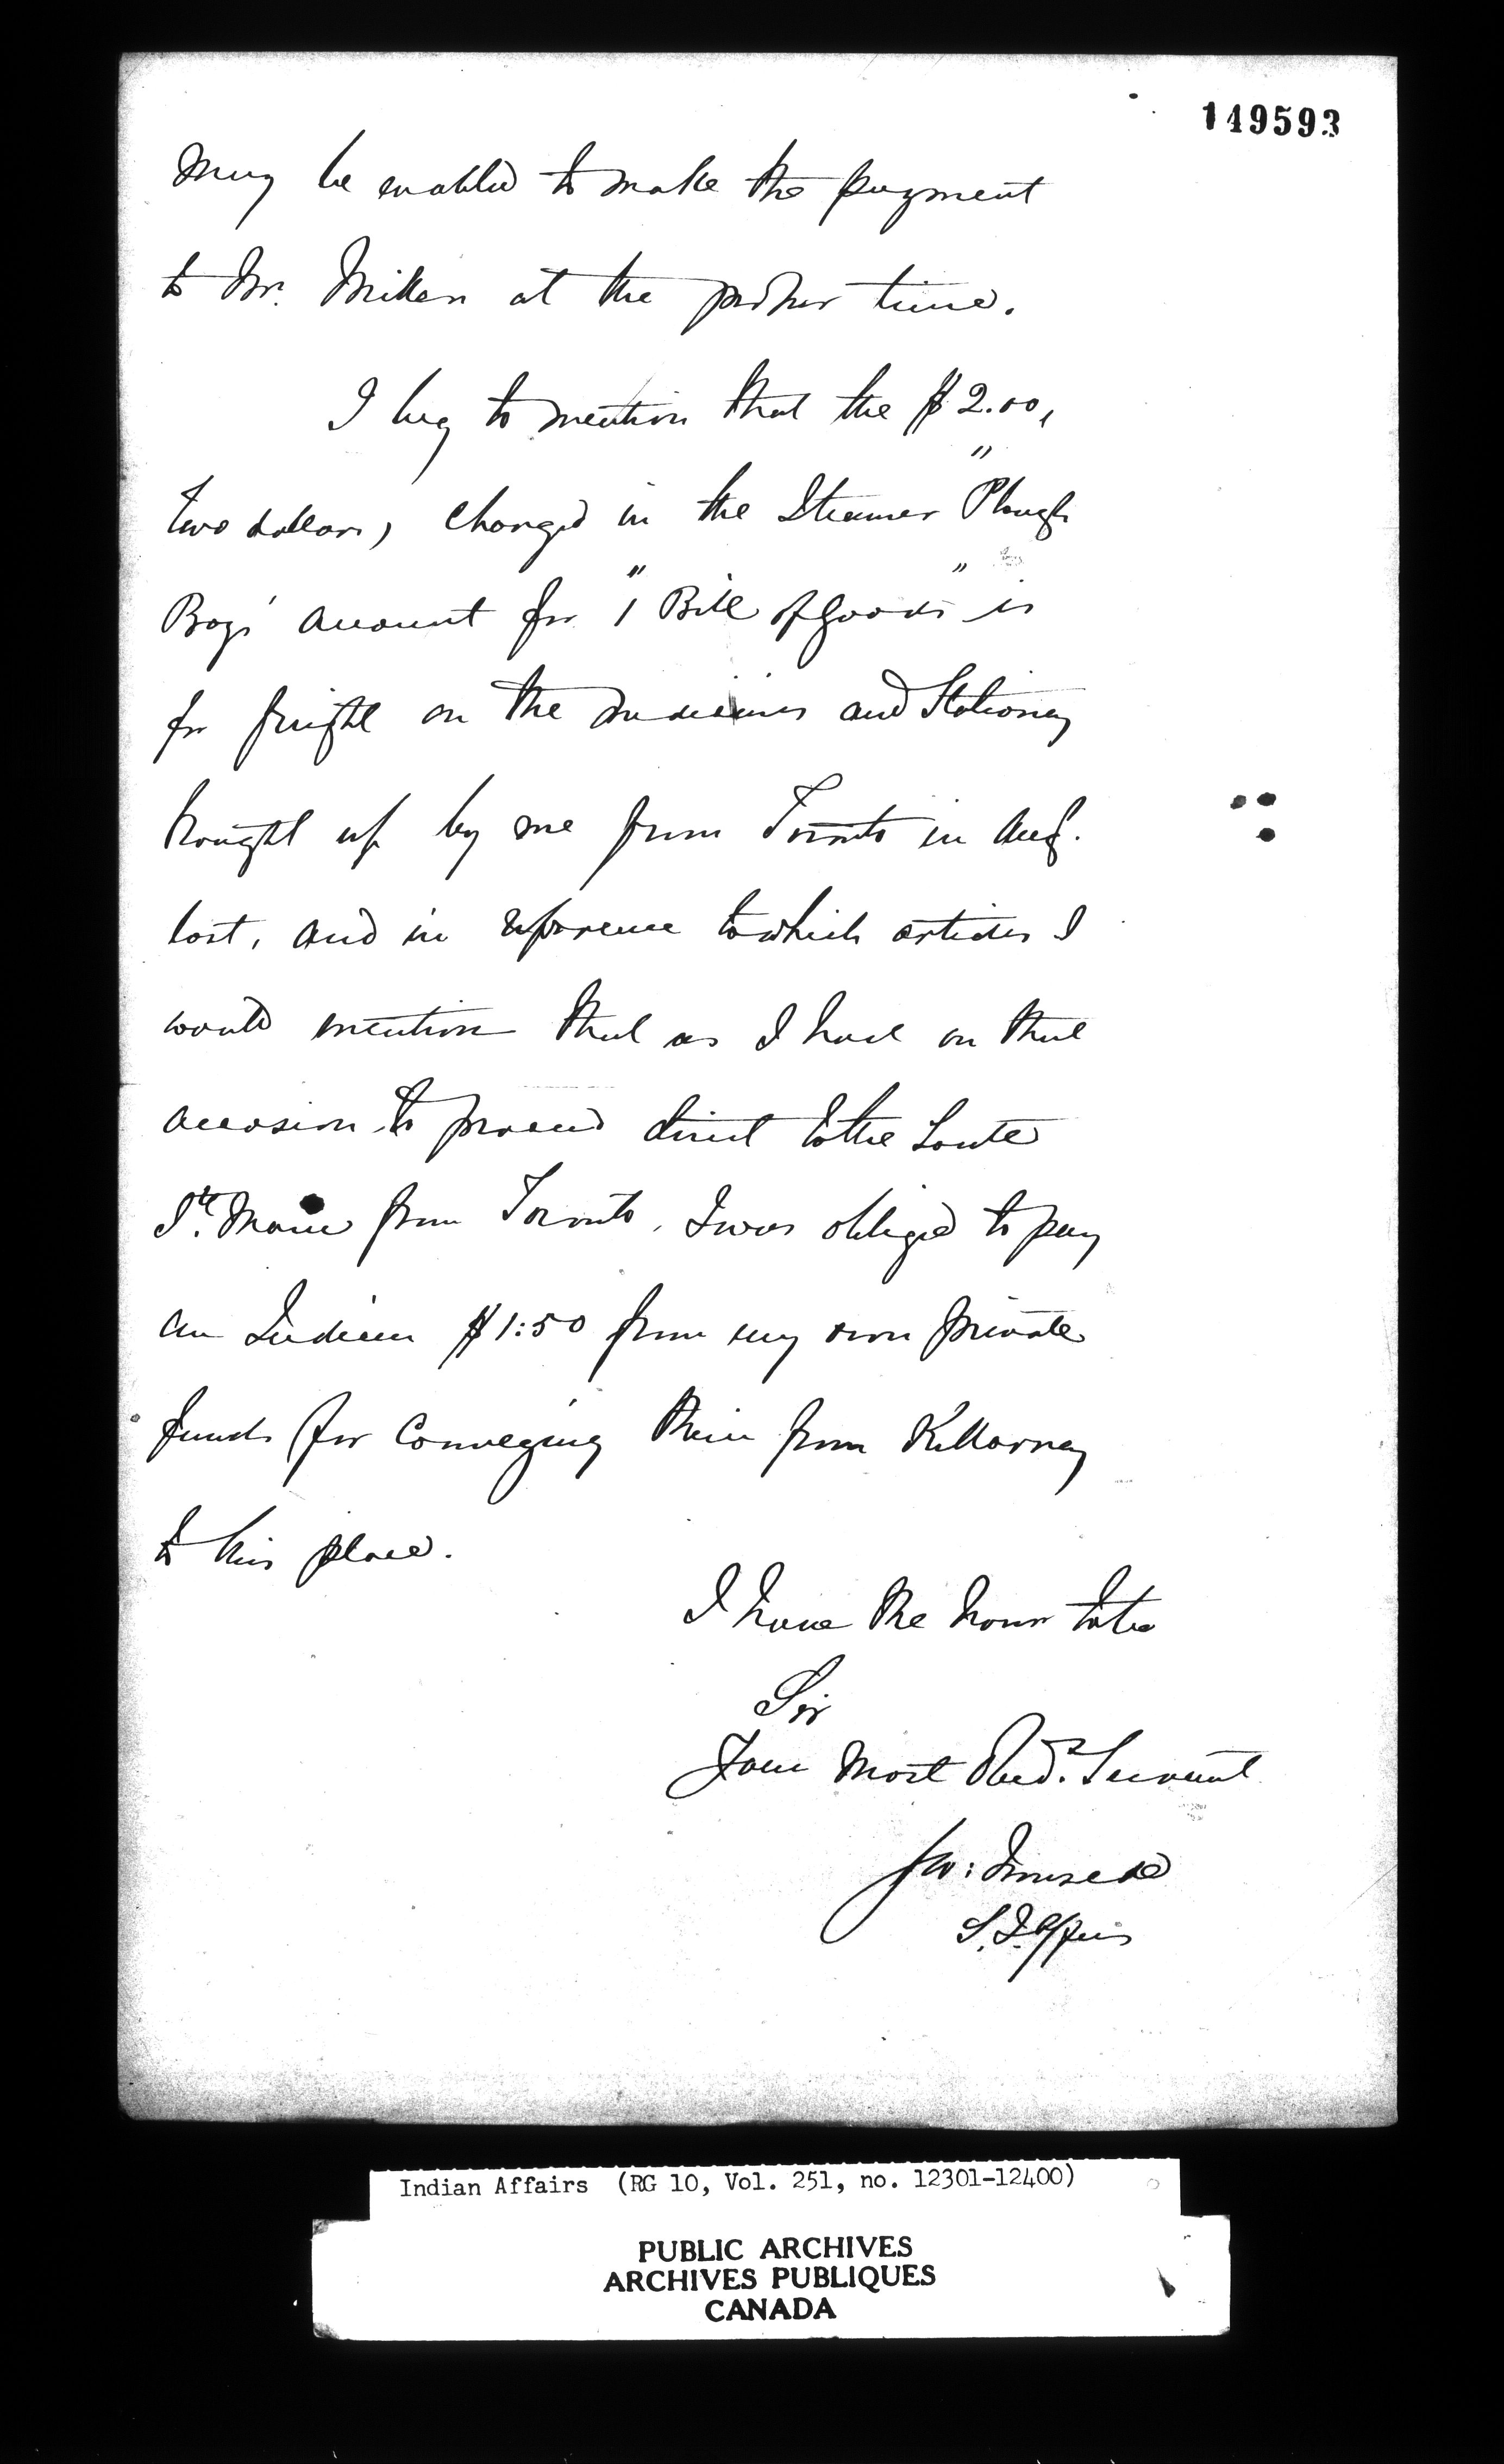 149593
may be enabled to make the payment
to Mr. Millar at the proper time.
I beg to mention that the $2.00,
two dollars, charged in the Steamer "Plough
Boy's account for "1 Bill of goods" is
for freight on the medicines and Stationery
brought up by me from Toronto in Aug.
last, and in reference to which articles I
would mention that as I had on that
occasion to proceed direct to the Saute
Ste. Marie from Toronto, I was obliged to pay
an Indian $1:50 from my own private
funds for conveying them from Killarney
to this place.
I have the honor to be
Sir
Your Most Obed. Servant
S. I. Affairs
Indian Affairs (RG 10, Vol. 251, no. 12301-12400)
PUBLIC ARCHIVES
ARCHIVES PUBLIQUES
CANADA